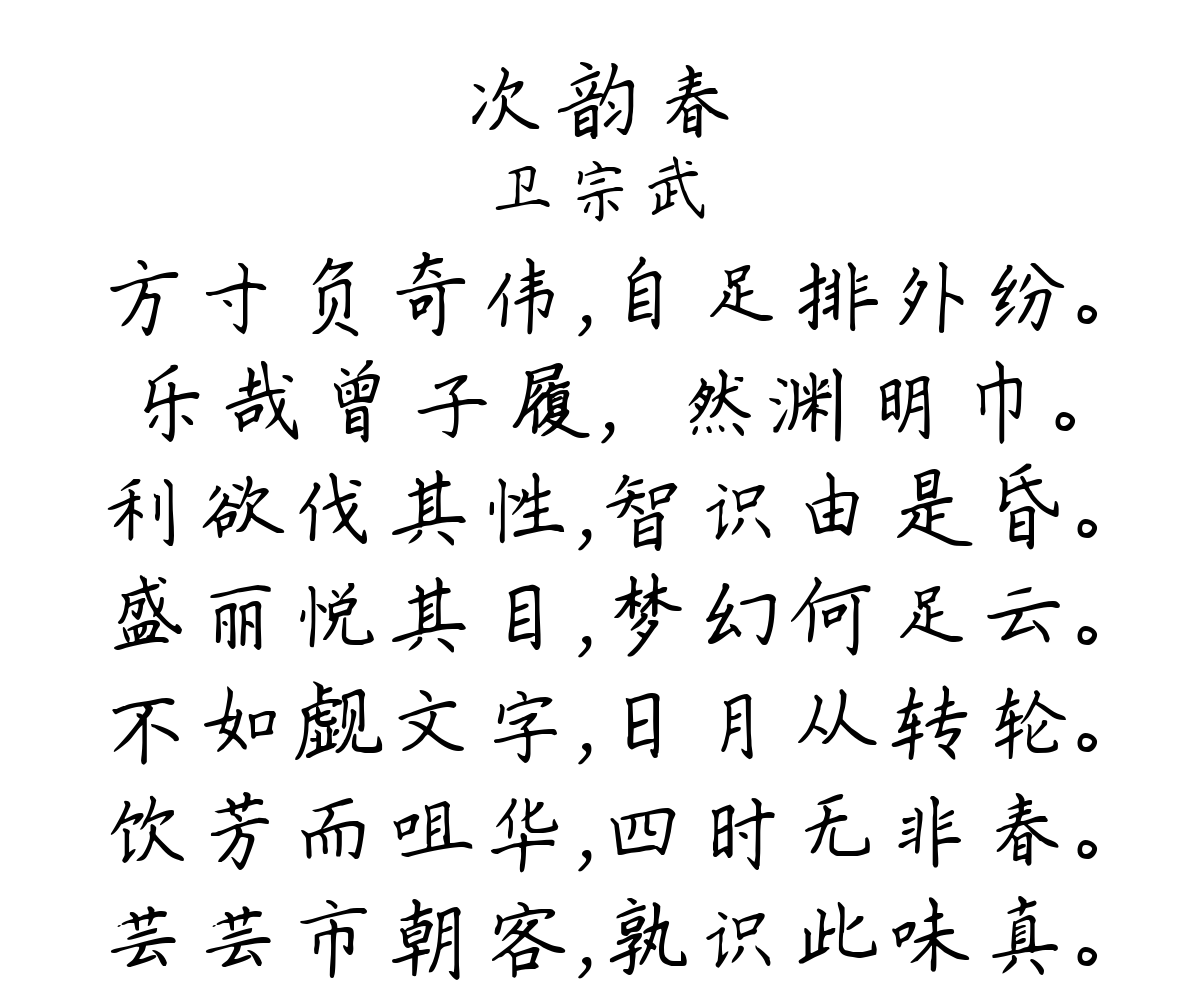 次韵春
卫宗武
方寸负奇伟,自足排外纷。
乐哉曾子履, 然渊明巾。
利欲伐其性,智识由是昏。
盛丽悦其目,梦幻何足云。
不如觑文字,日月从转轮。
饮芳而咀华,四时无非春。
芸芸市朝客,孰识此味真。